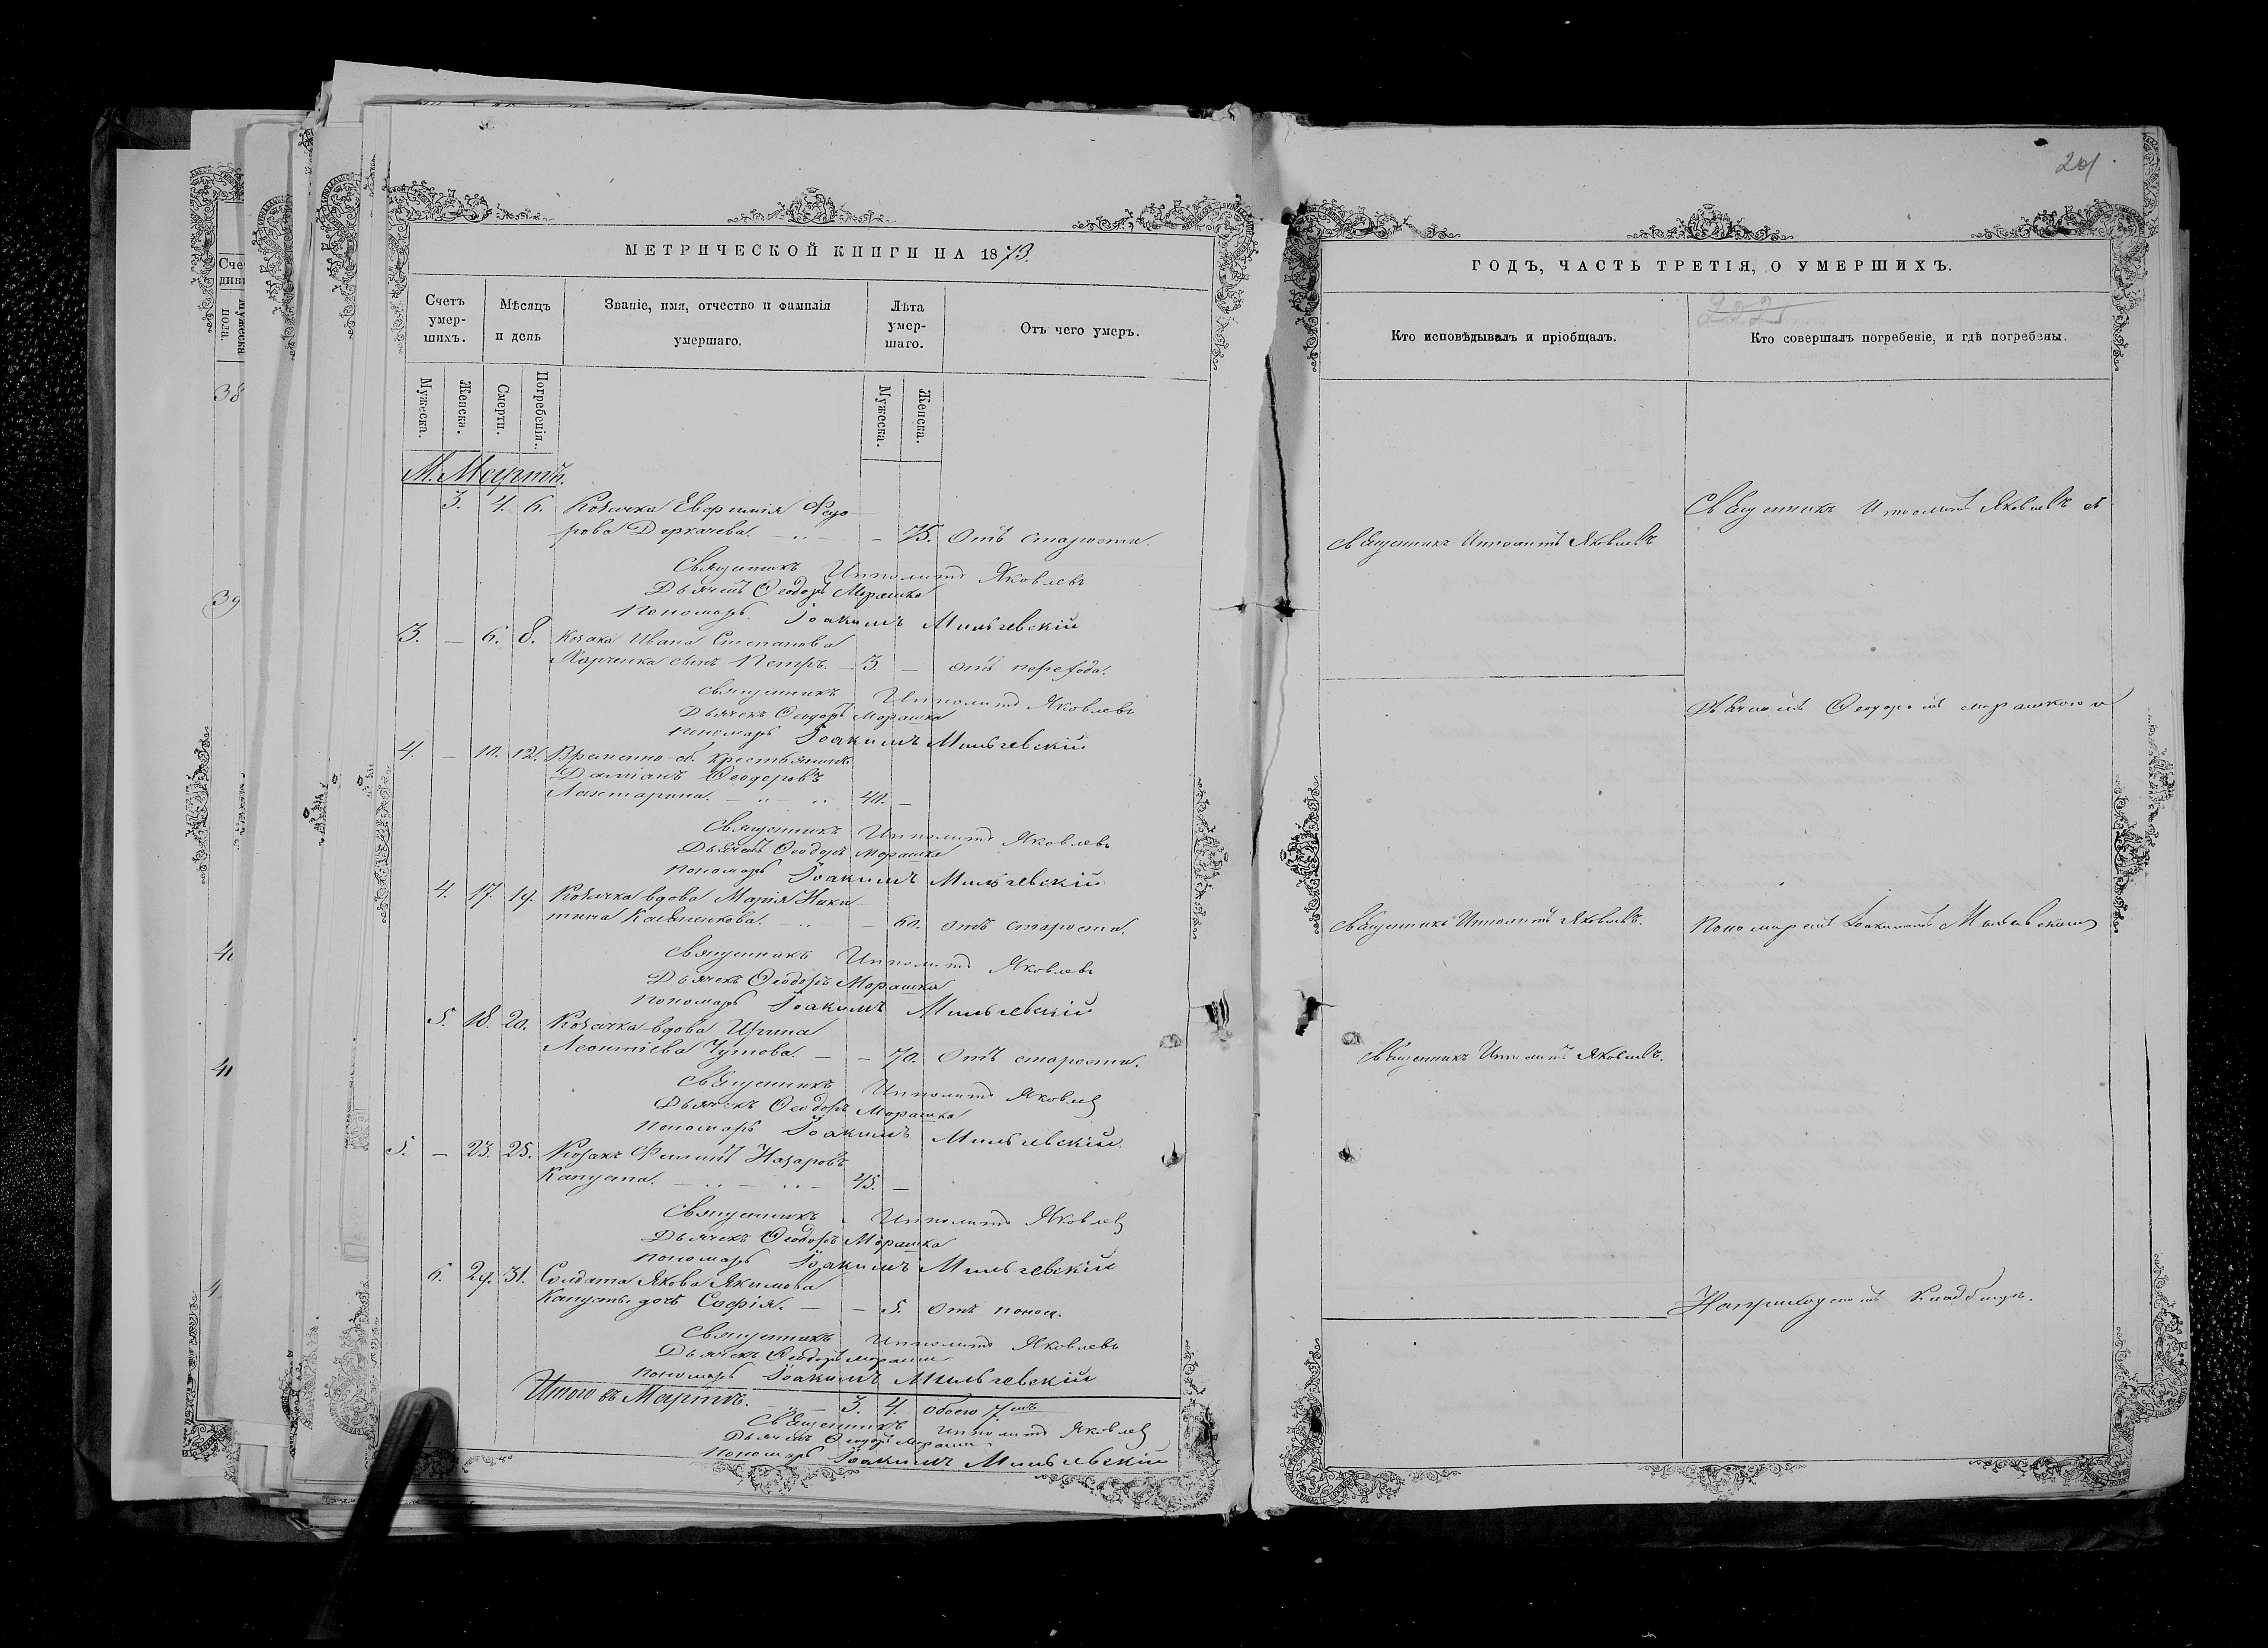 201
МЕТРИЧЕСКОЙ КНИГИ НА 1873.
Счетъ умер-шихъ.
Мѣсяцъ и день
Званіе, имя, отчество и фамилія умершаго.
Лѣта умер-шаго.
Отъ чего умеръ.
Мужеска.
Женска.
Смерти.
Погребенія.
Мужеска.
Женска.
М. Мартъ.
3. 4. 6. Козачка Евфимія Федо-
рова Деркачева. — 75. Отъ старости.
Священникъ Ипполитъ Яковлевъ
Дьячекъ Ѳеодоръ Морашка
Пономарь Іоакимъ Мильчевскій
3. — 6. 8. Козака Ивана Степанова
Харченка сынъ Петръ. — 3. — отъ перехода.
Священникъ Ипполитъ Яковлевъ
Дьячекъ Ѳеодоръ Морашка
пономарь Іоакимъ Мильчевскій
4. — 10. 12. Временно-об. крестьянинъ
Даміанъ Ѳеодоровъ
40. —
Священникъ Ипполитъ Яковлевъ
Дьячекъ Ѳеодоръ Морашка
пономарь Іоакимъ Мильчевскій
4. 17. 19. Козачка вдова Марія Ники-
тина — 60. отъ старости.
Священникъ Ипполитъ Яковлевъ
Дьячекъ Ѳеодоръ Морашка
пономарь Іоакимъ Мильчевскій
5. 18. 20. Козачка вдова Ирина
Леонтіева Чутова. — — 70. Отъ старости.
Священникъ Ипполитъ Яковлев
Дьячекъ Ѳеодоръ Морашка
пономарь Іоакимъ Мильчевскій
5. — 23. 25. Козакъ Филиппъ Назаровъ
Капуста. — 45. —
Священникъ Ипполитъ Яковлев
Дьячекъ Ѳеодоръ Морашка
пономарь Іоакимъ Мильчевскій
6. 29. 31. Солдата Якова Якимова
Капусты дочь Софія. — — 5. Отъ поноса.
Священникъ Ипполитъ Яковлевъ
Дьячекъ Ѳеодоръ Морашка
пономарь Іоакимъ Мильчевскій
Итого въ Мартѣ. — 3. 4. обоего 7мь
Священникъ Ипполитъ Яковлев
Дьячекъ Ѳеодоръ Морашка
Пономарь Іоакимъ Мильчевскій
ГОДЪ, ЧАСТЬ ТРЕТІЯ, О УМЕРШИХЪ.
Кто исповѣдывалъ и пріобщалъ.
Кто совершалъ погребеніе, и гдѣ погребены.
Священникъ Ипполитъ Яковлевъ съ
Священникъ Ипполитъ Яковлевъ
Дьячкомъ Ѳеодоромъ Морашкою и
Священникъ Ипполитъ Яковлевъ.
Пономаремъ Іоакимомъ Мильчевскимъ
Священникъ Ипполитъ Яковлевъ.
На приходскомъ кладбищѣ.
Сче
диви
Мужеска
пола.
38
39